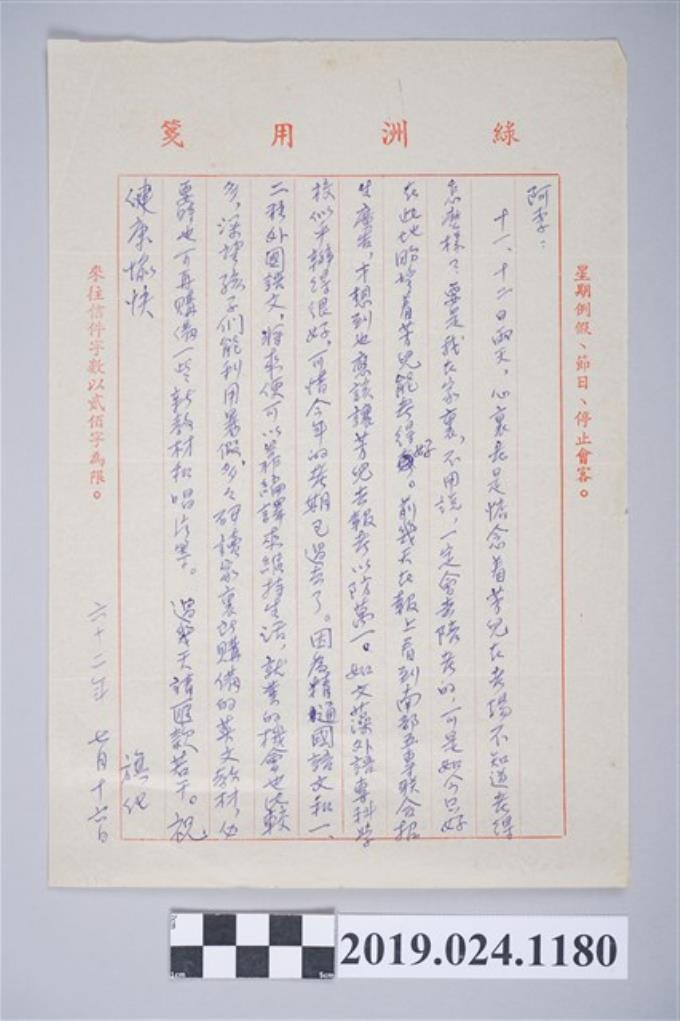 綠洲用箋
星期例假、節日、停止會客。
阿李：
十一、十二日兩天，心裏老是惦念着芳兒在考場不知道考得
怎麼樣？要是我在家裏，不用說，一定會去陪考的，可是如今只好
在此地盼望着芳兒能考得好。前幾天在報上看到南部五專聯合招
生廣告，才想到也應該讓芳兒去報考以防萬一。如文藻外語專科學
校似乎辦得很好，可惜今年的考期已過去了。因為精通國語文和一、
二種外國語文，將來便可以靠編譯來維持生活，就業的機會也比較
多，深望孩子們能利用暑假多多研讀家裏所購備的英文教材，必
要時也可再購備一些新教材和唱片等。過幾天請匯款若干。祝
健康愉快
旗化
六十二年七月十六日
來往信件字數以貳佰字為限。
2019.024.1180